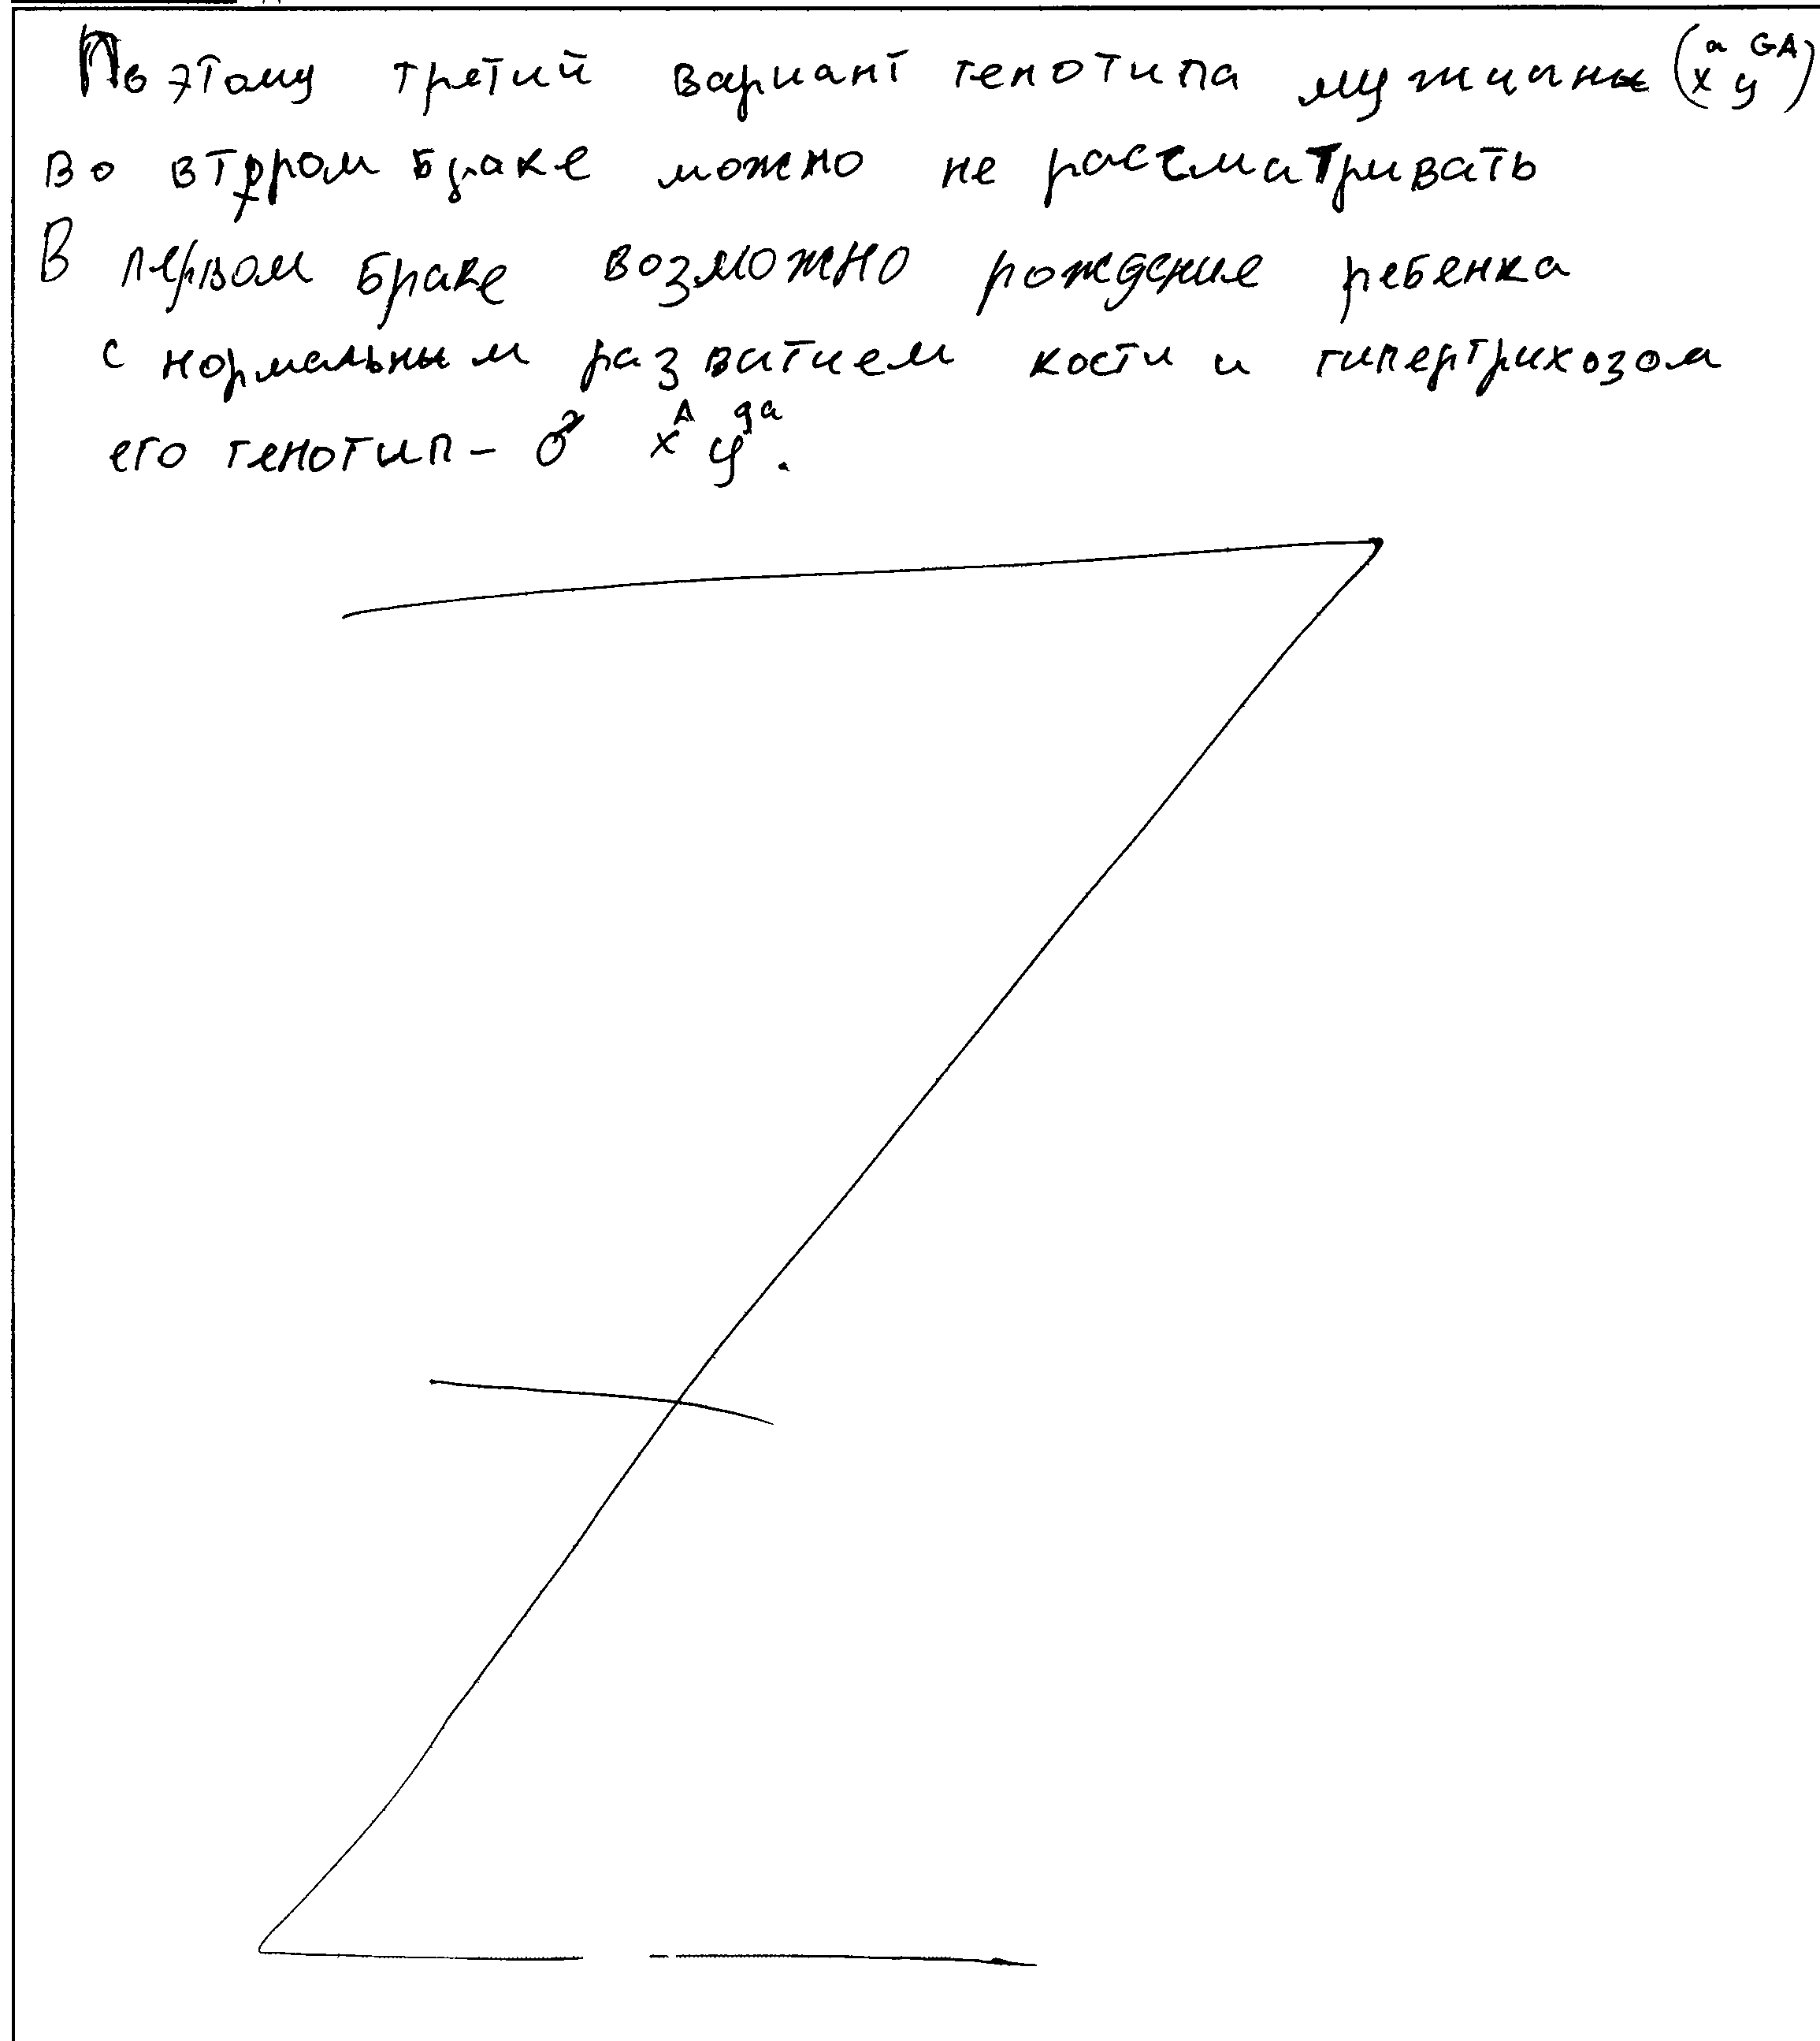 Поэтому третий вариант генотипа мужчины (xᵃ yᴳᴬ)
во втором браке можно не рассматривать
В первом браке возможно рождение ребенка
с нормальным развитием кости и гипертрихозом
его генотип - ♂ xᴬ yᵍᵃ.